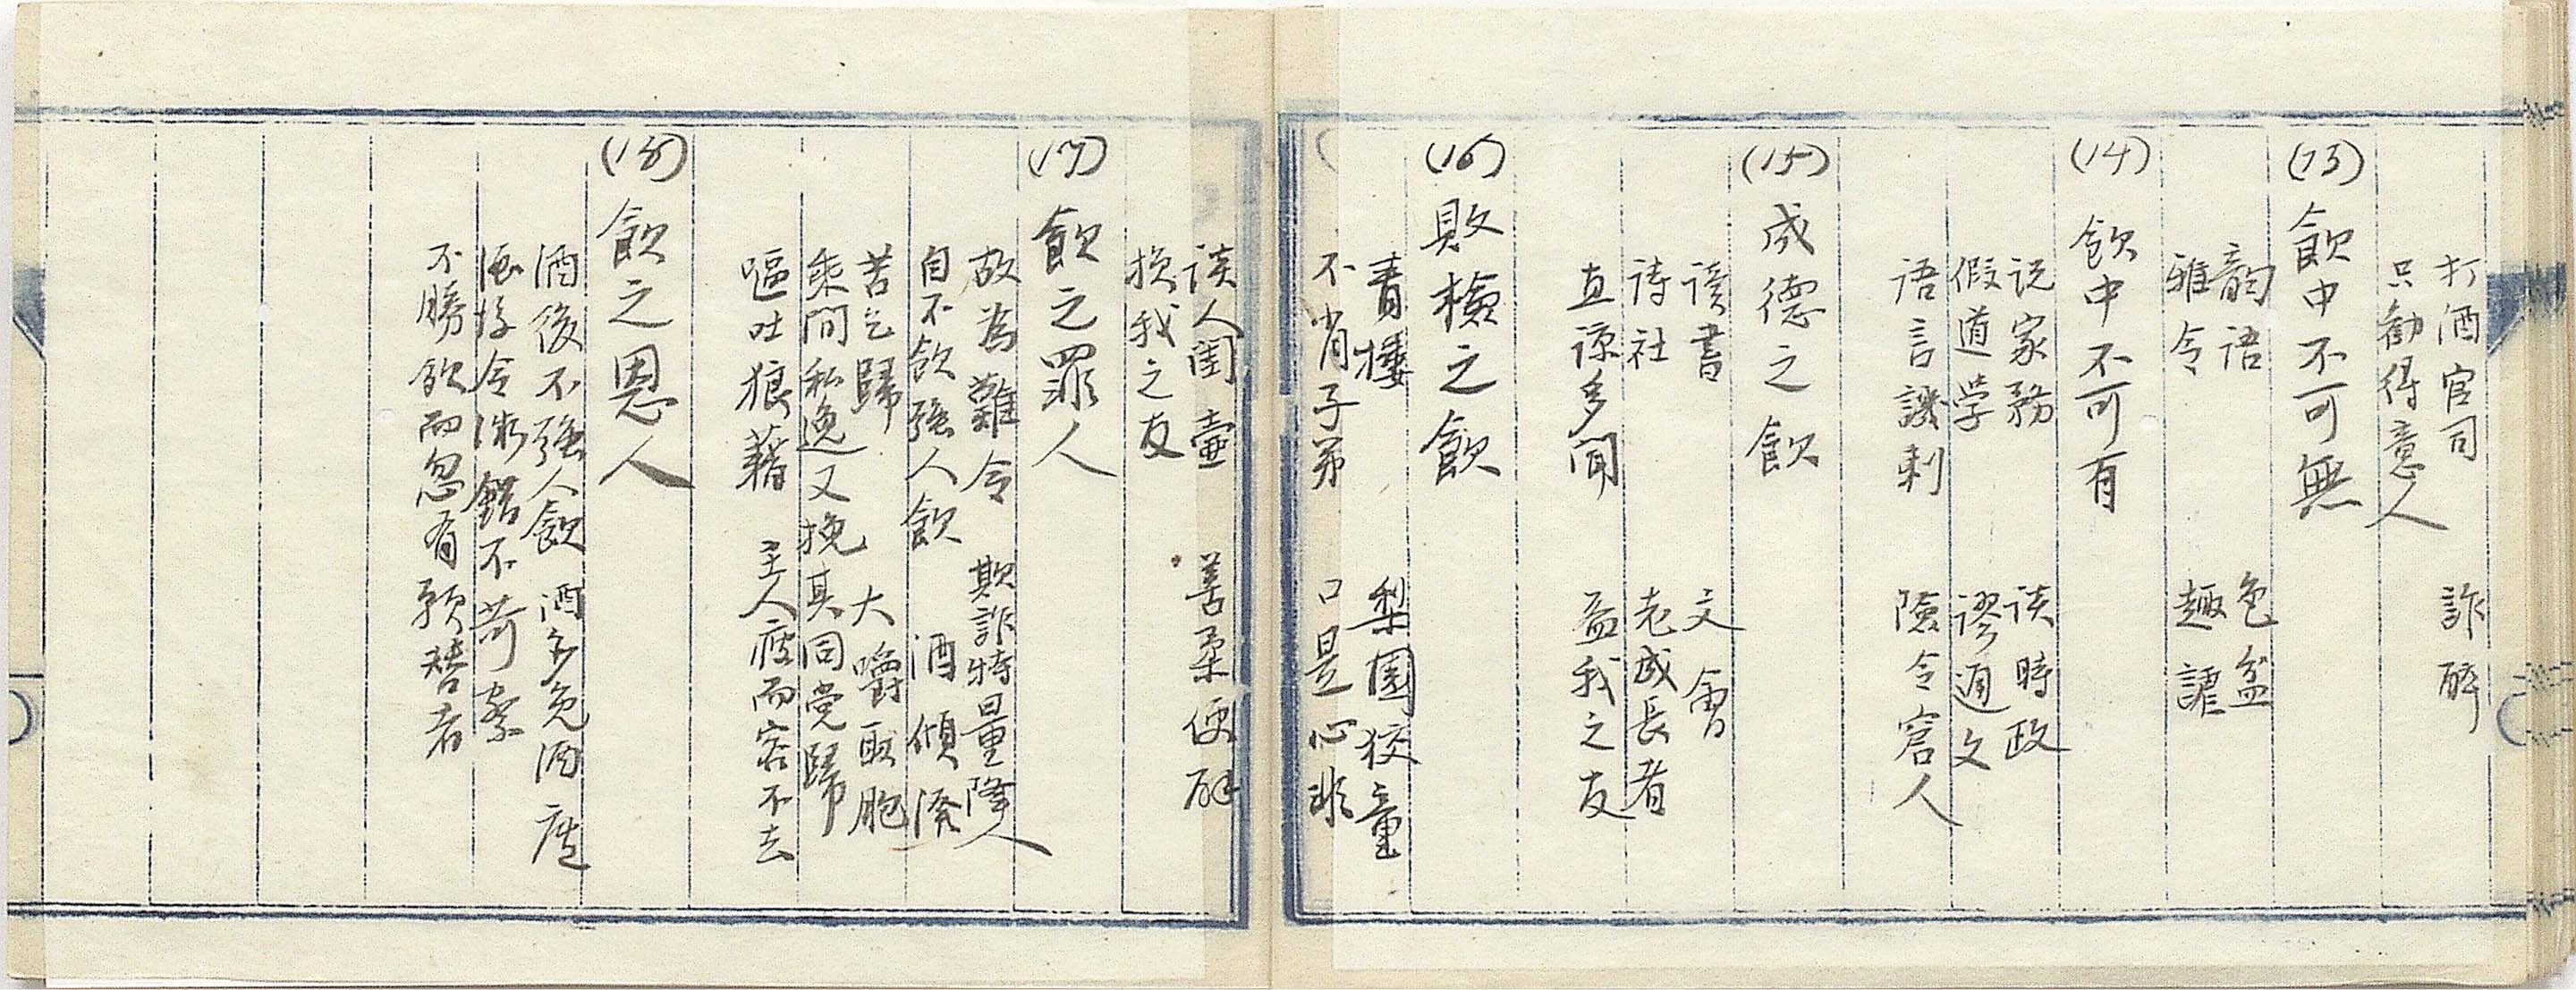 打酒官司　詐醉
只勸得意人
(13) 飲中不可無
韵语　色盆
雅令　趣謔
(14) 飲中不可有
说家務　谈時政
假道学　謬通文
语言譏刺　險令窘人
(15) 成德之飲
读書　文會
诗社　老成長者
直谅多聞　益我之友
(16) 敗檢之飲
青楼　梨園狡童
不肖子弟　口是心非
谈人闺壷　善柔便辟
损我之友
(17) 飲之罪人
故為難令　欺詐恃量降人
自不飲强人飲　酒傾潑
苦乞歸　大嚼取胞
乘間私逸又挽其同党歸
嘔吐狼藉　主人疲而客不去
(18) 飲之恩人
酒後不强人飲　酒多免酒
令涉錯不苛察
不勝飲而忽有願替者